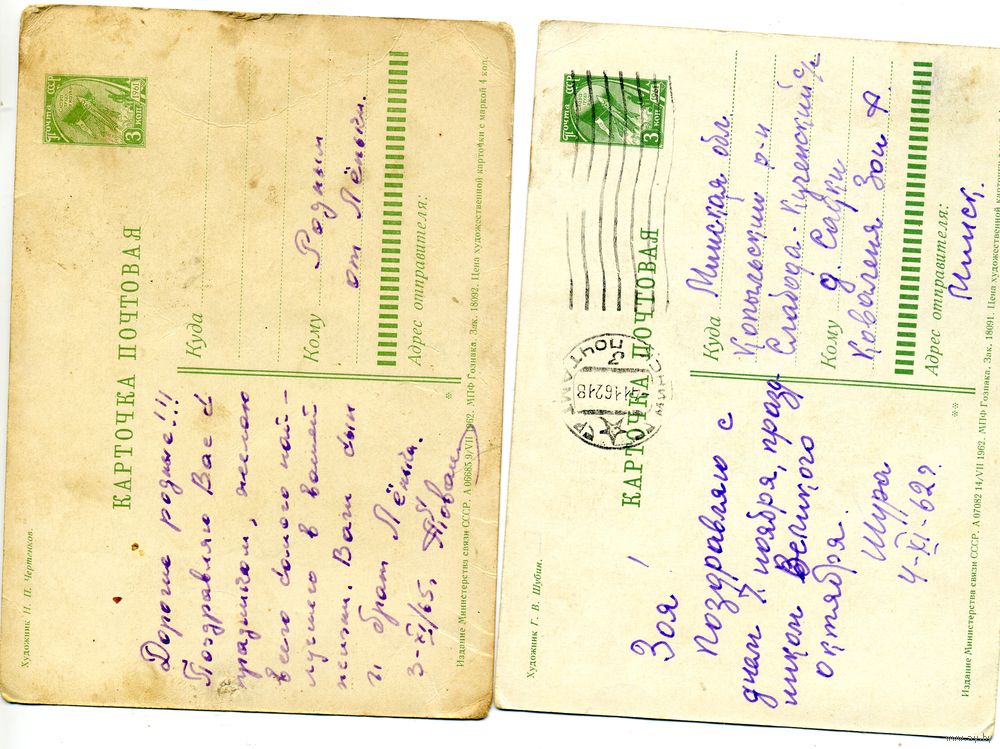 Художник Н. П. Чертенков.
КАРТОЧКА ПОЧТОВАЯ
ПОЧТА СССР
1961
3 КОП
Дорогие родные!!!
Поздравляю Вас с
праздником, желаю
всего самого най-
лучшего в вашей
жизни. Ваш сын
и брат Лёнька.
3-XI/65.
Куда
Кому
Родным
от Лёньки.
Адрес отправителя:
Издание Министерства связи СССР. А 06685 9/VII 1962. МПФ Гознака. Зак. 18092. Цена художественной карточки с маркой 4 коп.
Художник Г. В. Шубин.
КАРТОЧКА ПОЧТОВАЯ
ПОЧТА СССР
1961
3 КОП
ПОЧТАМТ
Зоя!
Поздравляю с
днём 7 ноября, празд-
ником Великого
октября.
Шура
4-XI-62г.
Куда Минская обл
Копыльский р-н
Слабода-Кученский с/с
Кому д. Садки
Коваленя Зои А.
Адрес отправителя:
Минск.
Издание Министерства связи СССР. А 07082 14/VII 1962. МПФ Гознака. Зак. 18091. Цена художественной